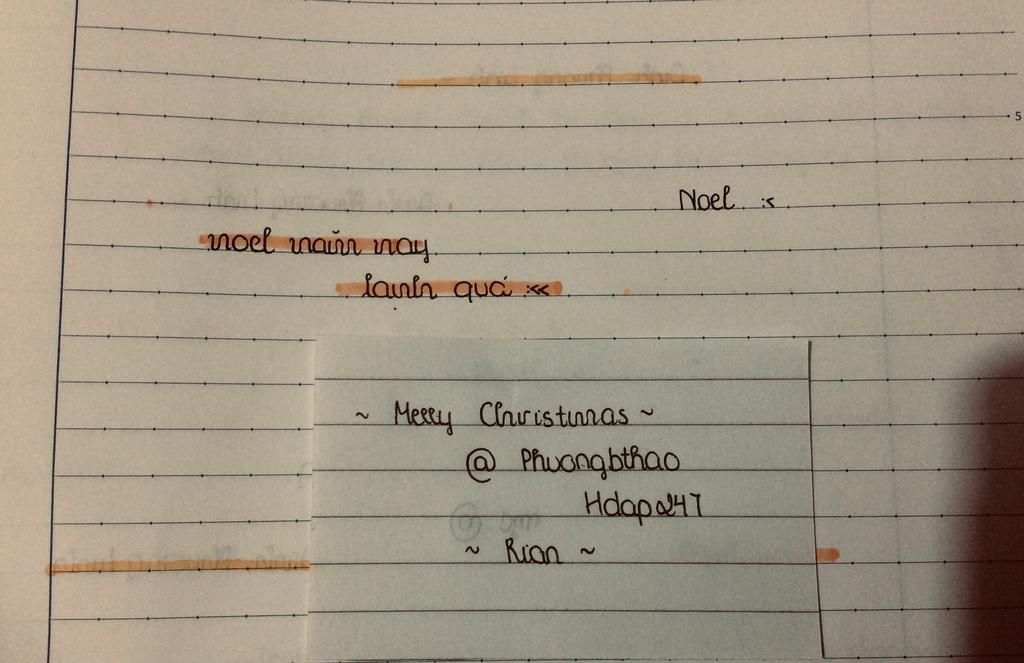 5
Noel :<
noel năm nay
lạnh quá :<<
~ Merry Christmas ~
@ Phuongbthao
Hdap247
~ Rian ~